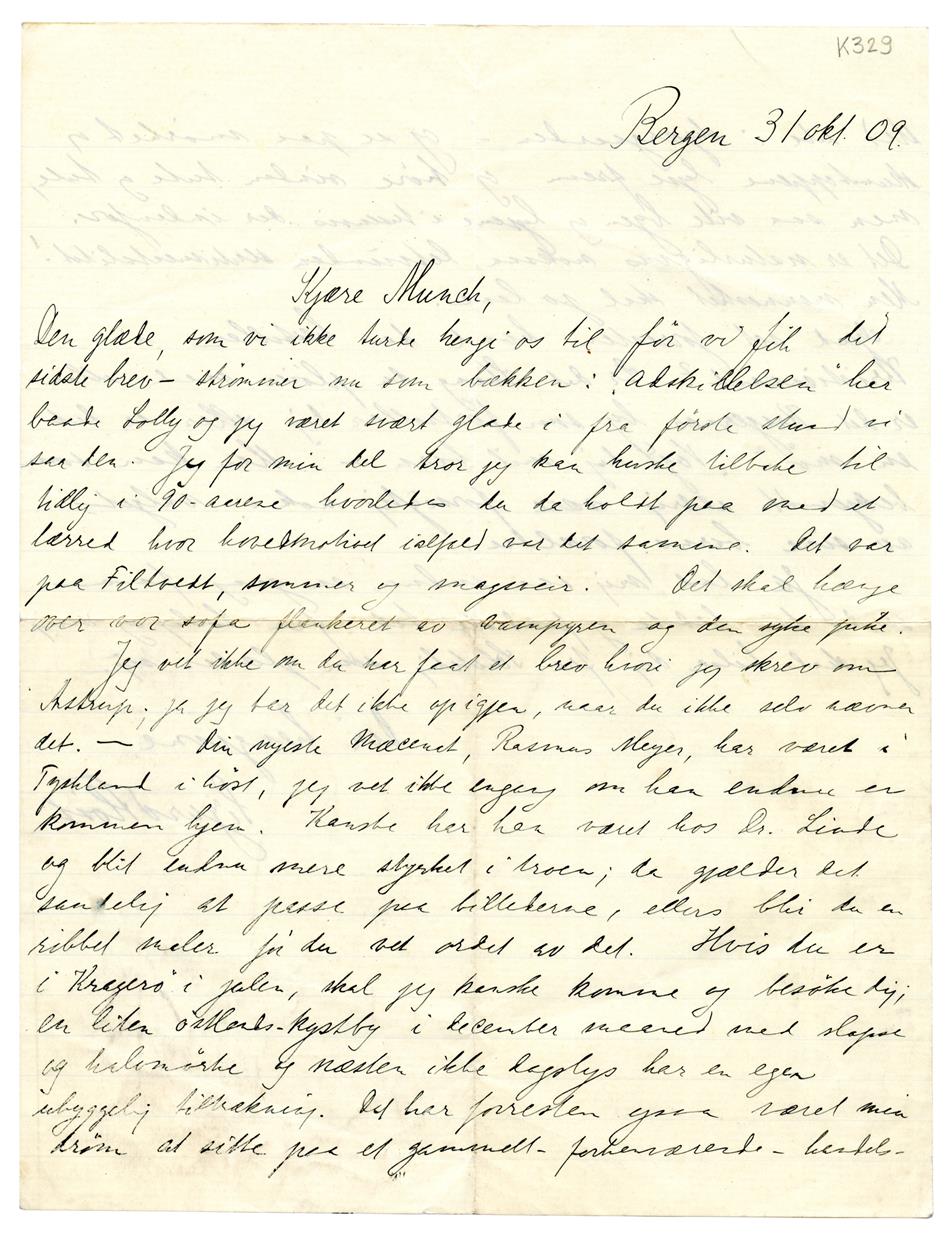 K329
Bergen 31 okt. 09.
Kjære Munch,
Den glæde, som vi ikke turde hengi os til før vi fik dit
sidste brev – strømmer nu som bækken: "Adskillelsen" har
baade Lolly og jeg været svært glade i fra første stund vi
saa den. Jeg for min del tror jeg kan huske tilbake til
tidlig i 90-aarene hvorledes du da holdt paa med et
lærred hvor hovedmotivet ialfald var det samme. Det var
paa Filtvedt, sommer og magsveir. Det skal hænge
over vor sofa flankeret av vampyren og den syke pike.
Jeg vet ikke om du har faat et brev hvori jeg skrev om
Astrup; ja jeg tar det ikke op igjen, naar du ikke selv nævner
det. — Din nyeste Mæcenat, Rasmus Meyer, har været i
Tyskland i høst, jeg vet ikke engang om han endnu er
kommen hjem. Kanske har han været hos Dr. Linde
og blit endnu mere styrket i troen; da gjælder det
sandelig at passe paa billederne, ellers blir du en
ribbet maler før du vet ordet av det. Hvis du er
i Kragerø i julen, skal jeg kanske komme og besøke dig;
en liten østlands-kystby i december maaned med slapse
og halvmørke og næsten ikke dagslys har en egen
uhyggelig tiltrækning. Det har forresten ogsaa været min
drøm at sitte paa et gammelt – forhenværende – handels-